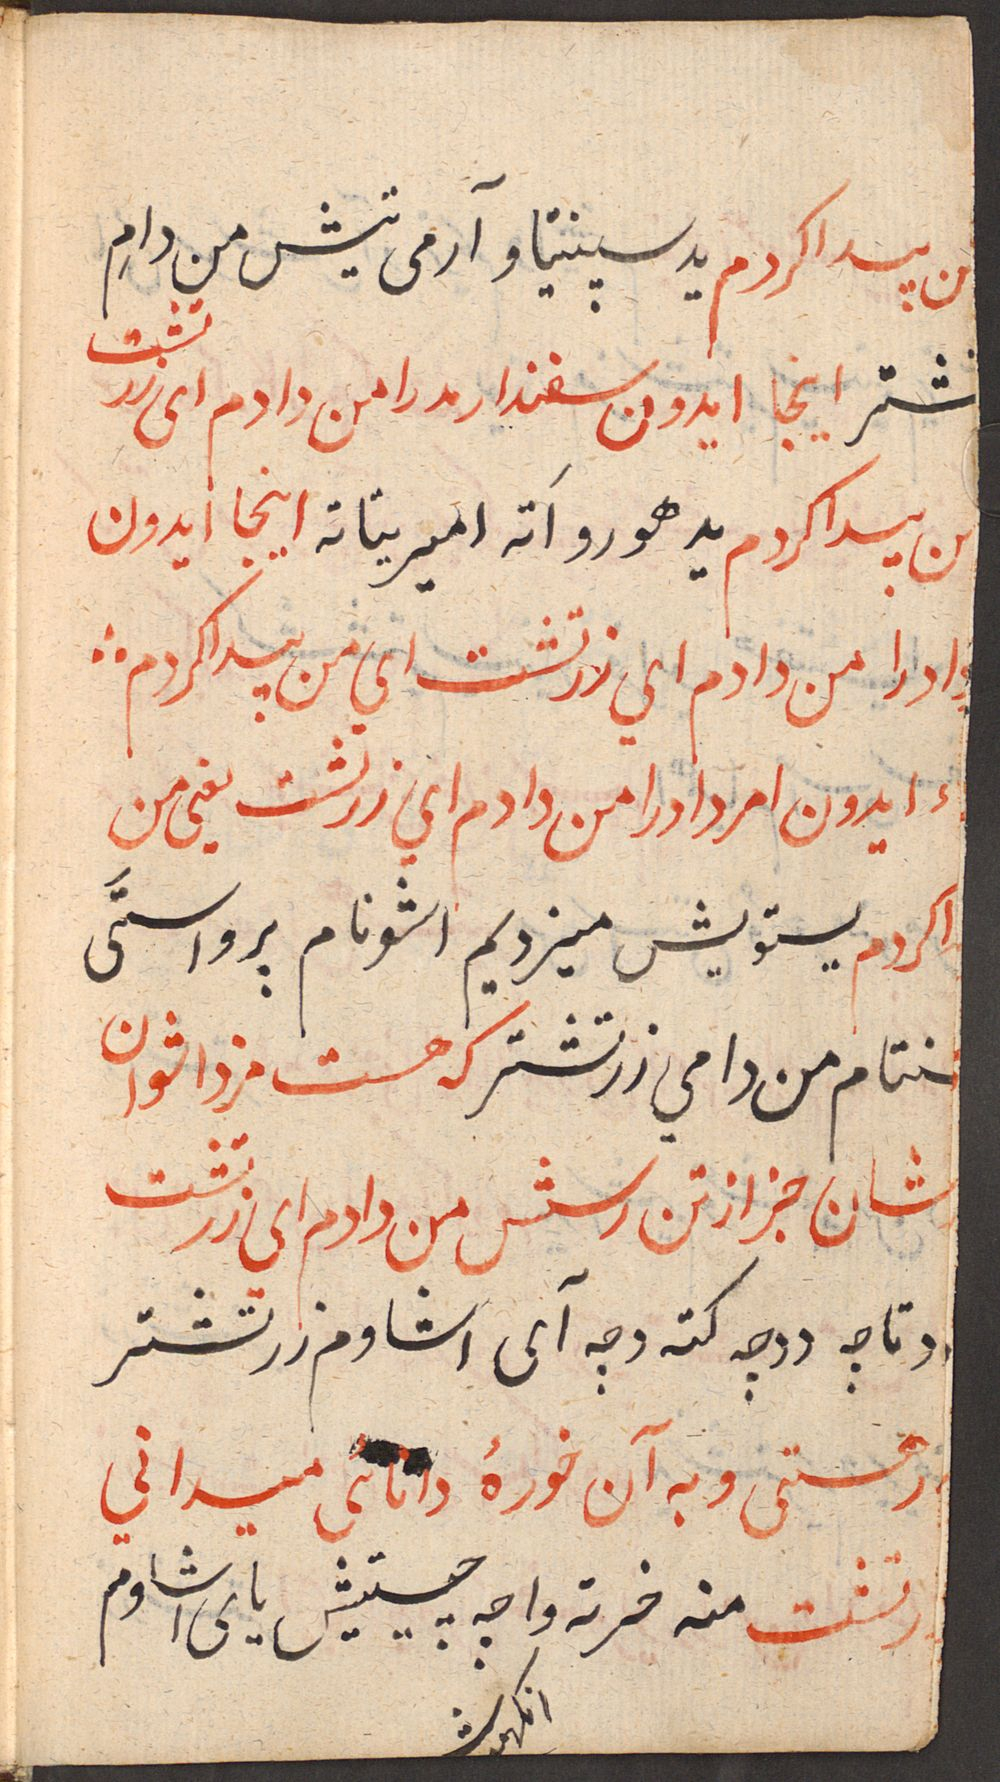 من پیدا کردم ید سپینتیا و آرمی تیش من دامِ
شتر اینجا ایدون سفندارمد را من دادم ای زرتشت
من پیدا کردم ید هورو اَته امیریتاته اینجا ایدون
داد را من دادم اي زرتشت اي من پیدا کردم
ایدون امرداد را من دادم اي زرتشت یعنی من
کردم یستویش میزدیم اشونام پرو استَی
نتام من دامي زرتشتر که هست مزد اشوان
شان جز از تن رسشن من دادم ای زرتشت
وتاچه ددچه کته دچه آی اشاوم زرتشتر
هستی و به آن خورهٔ دانائی میداني
رتشت منه خرته واچه چیستیش یا ی اشاوم
انکهوش